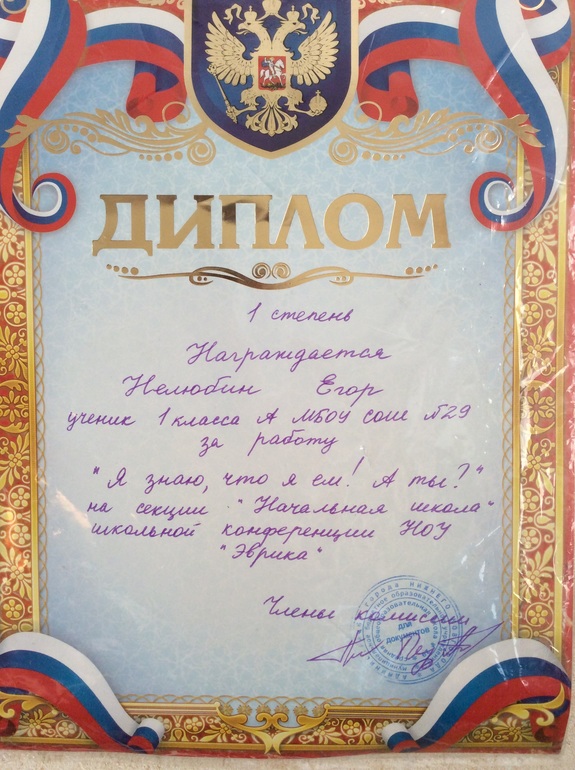 ДИПЛОМ
1 степень
Награждается
Нелюбин Егор
ученик 1 класса А МБОУ СОШ №29
за работу
"Я знаю, что я ем! А ты?"
на секции "Начальная школа"
школьной конференции НОУ
"Эврика"
Члены комиссии
для
документов